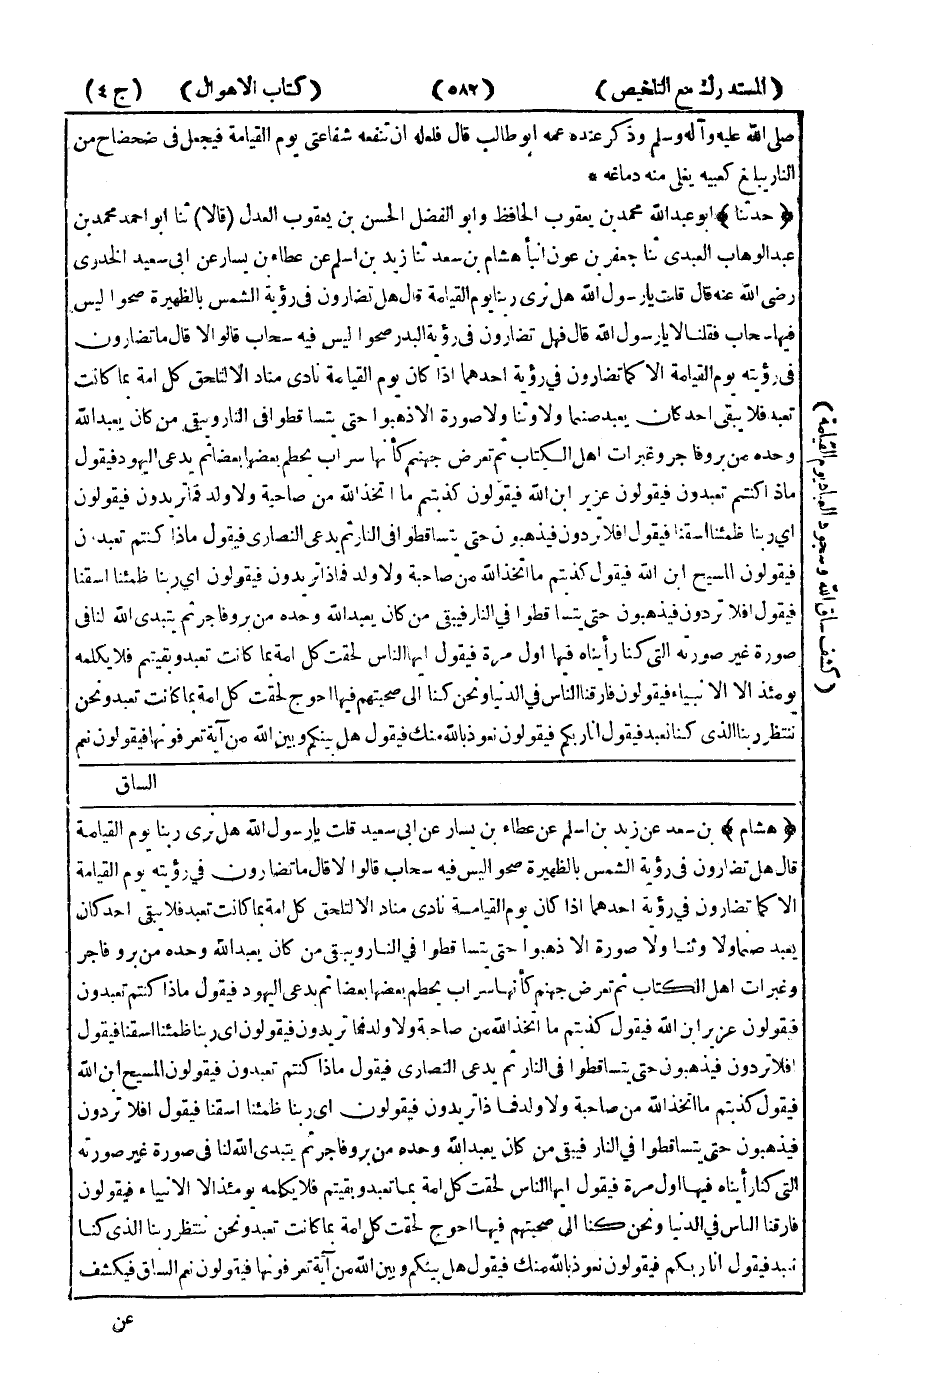 (المستدرك مع التلخيص) (٥٨٢) (كتاب الاهوال) (ج ٤)
صلى الله عليه وآله وسلم وذكر عنده عمه ابو طالب قال فلعله ان تنفعه شفاعتى يوم القيامة فيجعل فى ضحضاح من
النار يبلغ كعبيه يغلى منه دماغه *
﴿ حدثنا ﴾ ابو عبدالله محمد بن يعقوب الحافظ وابو الفضل الحسن بن يعقوب العدل (قالا) ثنا ابو احمد محمد بن
عبدالوهاب العبدى ثنا جعفر بن عون انبأ هشام بن سعد ثنا زيد بن اسلم عن عطاء بن يسار عن ابى سعيد الخدرى
رضى الله عنه قال قلت يا رسول الله هل نرى ربنا يوم القيامة قال هل تضارون فى رؤية الشمس بالظهيرة صحوا ليس
فيها سحاب فقلنا لا يا رسول الله قال فهل تضارون فى رؤية البدر صحوا ليس فيه سحاب قالوا لا قال ما تضارون
فى رؤيته يوم القيامة الا كما تضارون في رؤية احدهما اذا كان يوم القيامة نادى مناد الا لتلحق كل امة بما كانت
تعبد فلا يبقى احد كان يعبد صنما ولا وثنا ولا صورة الا ذهبوا حتى يتساقطوا فى النار ويبقى من كان يعبد الله
وحده من بر وفاجر وغبرات اهل الكتاب ثم تعرض جهنم كأنها سراب يحطم بعضها بعضا ثم يدعى اليهود فيقول
ماذا كنتم تعبدون فيقولون عزير ابن الله فيقولون كذبتم ما اتخذ الله من صاحبة ولا ولد فما تريدون فيقولون
اي ربنا ظمئنا اسقنا فيقول افلا تردون فيذهبون حتى يتساقطوا فى النار ثم يدعى النصارى فيقول ماذا كنتم تعبدون
فيقولون المسيح ابن الله فيقول كذبتم ما اتخذ الله من صاحبة ولا ولد فماذا تريدون فيقولون اي ربنا ظمئنا اسقنا
فيقول افلا تردون فيذهبون حتى يتساقطوا في النار فيبقى من كان يعبد الله وحده من بر وفاجر ثم يتبدى الله لنا فى
صورة غير صورته التى كنا رأيناه فيها اول مرة فيقول ايها الناس لحقت كل امة بما كانت تعبد وبقيتم فلا يكلمه
يومئذ الا الانبياء فيقولون فارقنا الناس في الدنيا ونحن كنا الى صحبتهم فيها احوج لحقت كل امة بما كانت تعبد ونحن
ننتظر ربنا الذى كنا نعبد فيقول انا ربكم فيقولون نعوذ بالله منك فيقول هل بينكم وبين الله من آية تعرفونها فيقولون نعم
الساق
(كشف ساق الله وسجود العباد يوم القيامة)
﴿ هشام ﴾ بن سعد عن زيد بن اسلم عن عطاء بن يسار عن ابى سعيد قلت يا رسول الله هل نرى ربنا يوم القيامة
قال هل تضارون فى رؤية الشمس بالظهيرة صحوا ليس فيه سحاب قالوا لا قال ما تضارون في رؤيته يوم القيامة
الا كما تضارون في رؤية احدهما اذا كان يوم القيامة نادى مناد الا لتلحق كل امة بما كانت تعبد فلا يبقى احد كان
يعبد صنما ولا وثنا ولا صورة الا ذهبوا حتى يتساقطوا في النار ويبقى من كان يعبد الله وحده من بر وفاجر
وغبرات اهل الكتاب ثم تعرض جهنم كأنها سراب يحطم بعضها بعضا ثم يدعى اليهود فيقول ماذا كنتم تعبدون
فيقولون عزير ابن الله فيقول كذبتم ما اتخذ الله من صاحبة ولا ولد فما تريدون فيقولون اى ربنا ظمئنا اسقنا فيقول
افلا تردون فيذهبون حتى يتساقطوا فى النار ثم يدعى النصارى فيقول ماذا كنتم تعبدون فيقولون المسيح ابن الله
فيقول كذبتم ما اتخذ الله من صاحبة ولا ولد فماذا تريدون فيقولون اى ربنا ظمئنا اسقنا فيقول افلا تردون
فيذهبون حتى يتساقطوا في النار فيبقى من كان يعبد الله وحده من بر وفاجر ثم يتبدى الله لنا فى صورة غير صورته
التى كنا رأيناه فيها اول مرة فيقول ايها الناس لحقت كل امة بما تعبد وبقيتم فلا يكلمه يومئذ الا الانبياء فيقولون
فارقنا الناس في الدنيا ونحن كنا الى صحبتهم فيها احوج لحقت كل امة بما كانت تعبد ونحن ننتظر ربنا الذى كنا
نعبد فيقول انا ربكم فيقولون نعوذ بالله منك فيقول هل بينكم وبين الله من آية تعرفونها فيقولون نعم الساق فيكشف
عن